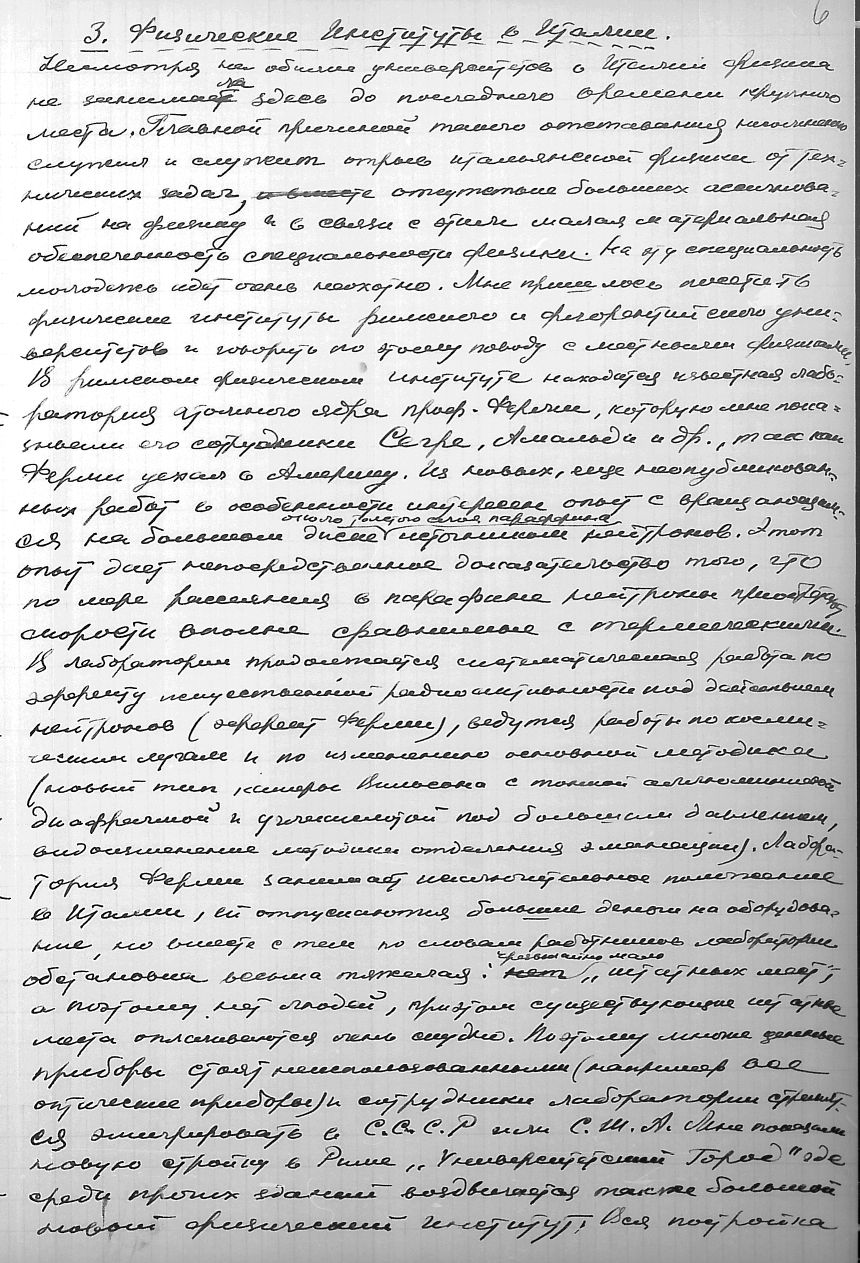 6
3. Физические Институты в Италии.
Несмотря на обилие университетов в Италии физика
не занимала здесь до последнего времени крупного
места. Главной причиной такого отставания несомненно
служил и служит отрыв итальянской физики от тех-
нических задач, отсутствие больших ассигнова-
ний на физику и в связи с этим малая материальная
обеспеченность специальности физики. На эту специальность
молодежь идет очень неохотно. Мне пришлось посетить
физические институты римского и флорентийского уни-
верситетов и говорить по этому поводу с местными физиками.
В римском физическом институте находится известная лабо-
ратория атомного ядра проф. Ферми, которую мне пока-
зывали его сотрудники Сегре, Амальди и др., так как
Ферми уехал в Америку. Из новых, еще неопубликован-
ных работ в особенности интересен опыт с вращающим-
ся на большом диске около толстого слоя парафина источником нейтронов. Этот
опыт дает непосредственное доказательство того, что
по мере рассеяния в парафине нейтроны приобретают
скорости вполне сравнимые с термическими.
В лаборатории продолжается систематическая работа по
эффекту искусственной радиоактивности под действием
нейтронов (эффект Ферми), ведутся работы по косми-
ческим лучам и по изменению основной методики
(новый тип камеры Вильсона с тонкой аллюминиевой
диафрагмой и углекислотой под большим давлением,
видоизменение методики отделения эманации). Лабора-
тория Ферми занимает исключительное положение
в Италии, ей отпускаются большие деньги на оборудова-
ние, но вместе с тем по словам работников лаборатории
обстановка весьма тяжелая: чрезвычайно мало „штатных мест“,
а поэтому нет людей, притом существующие штатные
места оплачиваются очень скудно. Поэтому многие ценные
приборы стоят неиспользованными (например все
оптические приборы) и сотрудники лаборатории стремят-
ся эмигрировать в С.С.С.Р или С.Ш.А. Мне показали
новую стройку в Риме „Университетский Город“ где
среди прочих зданий воздвигается также большой
новый физический институт. Вся постройка